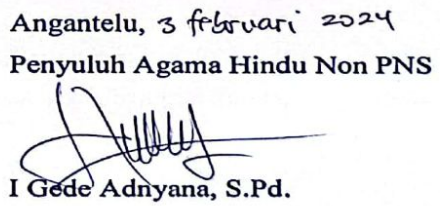 Angantelu, 3 februari 2024
Penyuluh Agama Hindu Non PNS
I Gede Adnyana, S.Pd.